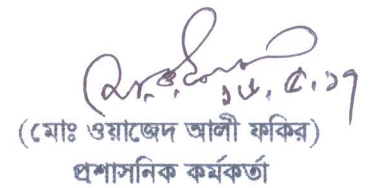 ১৬.৫.১৭
(মোঃ ওয়াজেদ আলী ফকির)
প্রশাসনিক কর্মকর্তা